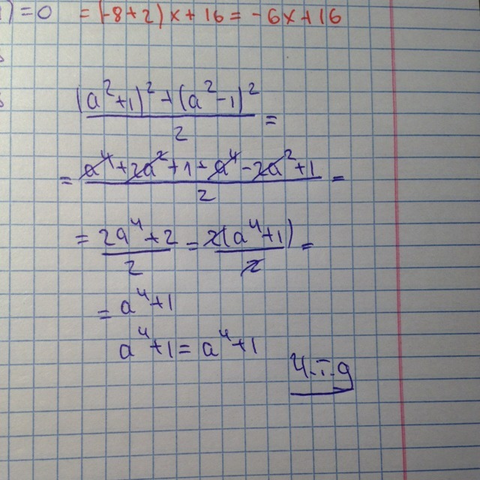 ) = 0 = (-8+2)x+16 = -6x+16
(a²+1)²+(a²-1)²/2 =
= a⁴+2a²+1+a⁴-2a²+1/2 =
= 2a⁴+2/2 = 2(a⁴+1)/2 =
= a⁴+1
a⁴+1 = a⁴+1
ч.т.д